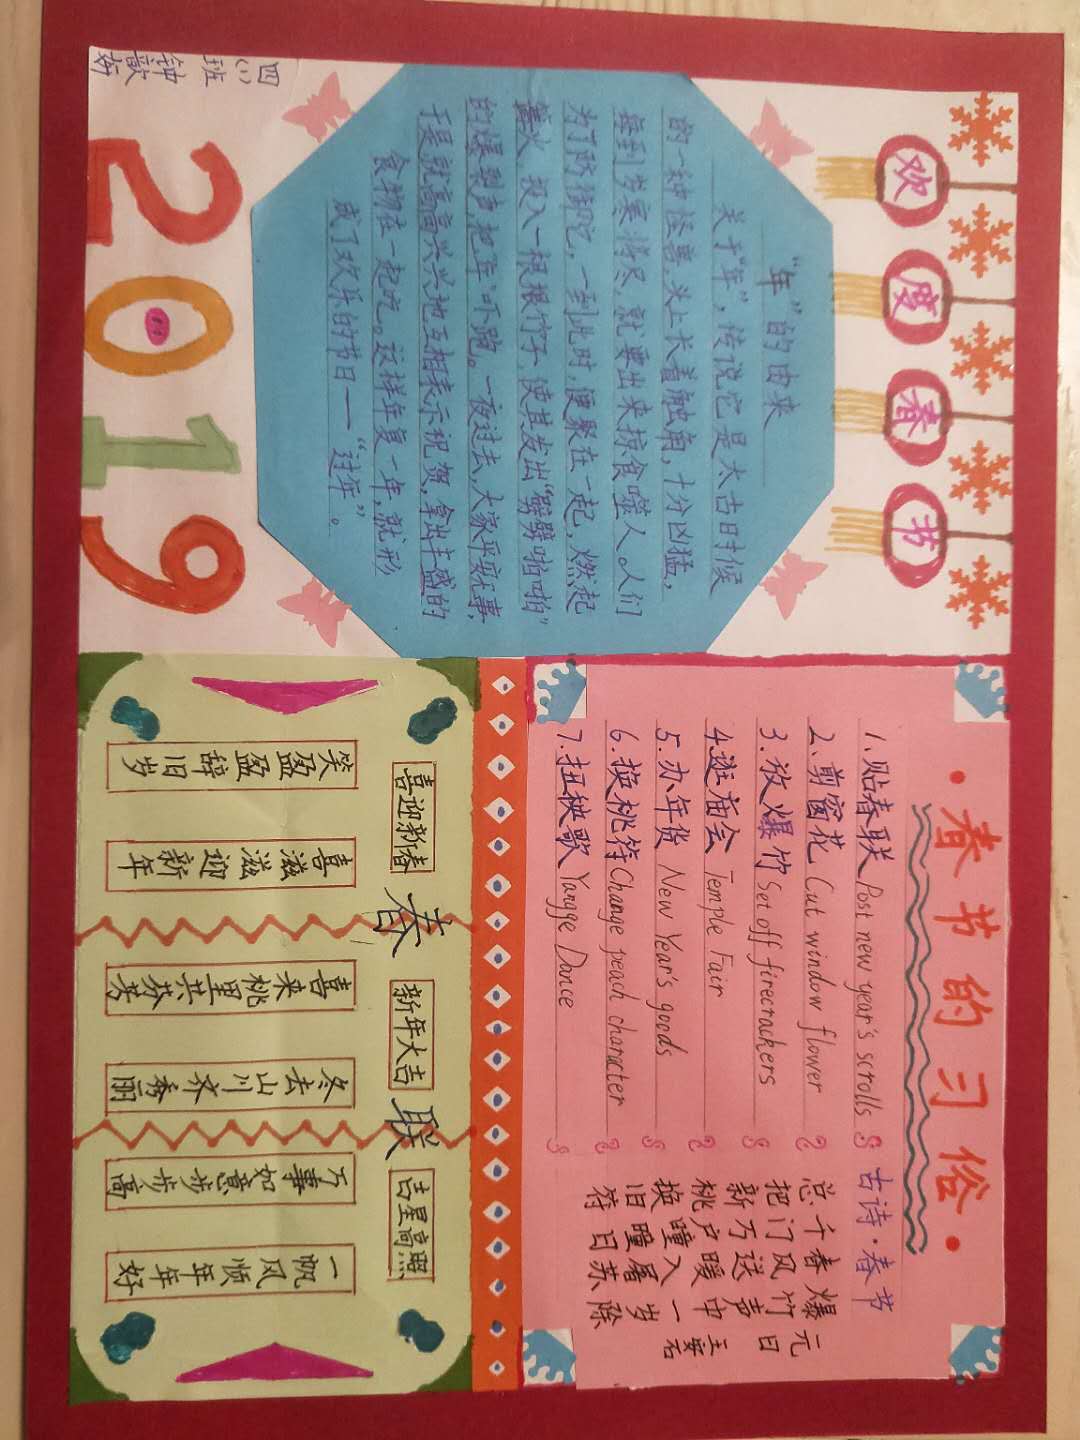 四(1)班
欢度春节
"年"的由来
关于"年",传说它是太古时候
的一种怪兽,头上长着触角,十分凶猛,
每到岁寒将尽,就要出来掠食噬人。人们
为了防御它,一到此时,便聚在一起,燃起
篝火,投入一根根竹子,使其发出"劈劈啪啪"
的爆裂声,把"年"吓跑。一夜过去,大家平安无事,
于是就高高兴兴地互相表示祝贺,拿出丰盛的
食物在一起吃。这样年复一年,就形
成了欢乐的节日——"过年"。
2019
春节的习俗
1.贴春联 Post new year's scrolls
2.剪窗花 Cut window flower
3.放爆竹 Set off firecrackers
4.逛庙会 Temple Fair
5.办年货 New Year's goods
6.换桃符 Change peach character
7.扭秧歌 Yangge Dance
古诗·春节
元日
王安石
爆竹声中一岁除
春风送暖入屠苏
千门万户瞳瞳日
总把新桃换旧符
春联
喜迎新春
笑盈盈辞旧岁
喜滋滋迎新年
新年大吉
喜来桃里共芬芳
冬去山川齐秀丽
吉星高照
万事如意步步高
一帆风顺年年好